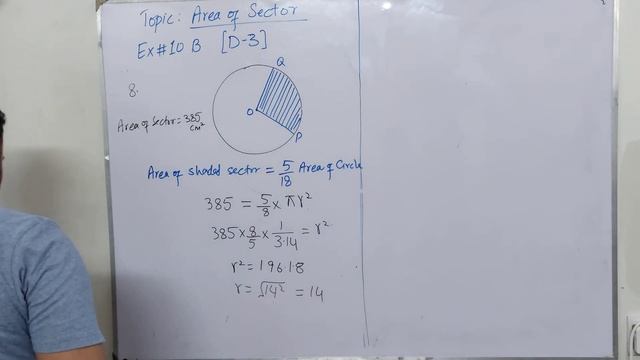 Topic: Area of Sector
Ex#10 B [D-3]
8.
Q
O
P
Area of Sector = 385 cm²
Area of shaded sector = 5/18 Area of Circle
385 = 5/8 × πr²
385 × 8/5 × 1/3.14 = r²
r² = 196.18
r = √14² = 14